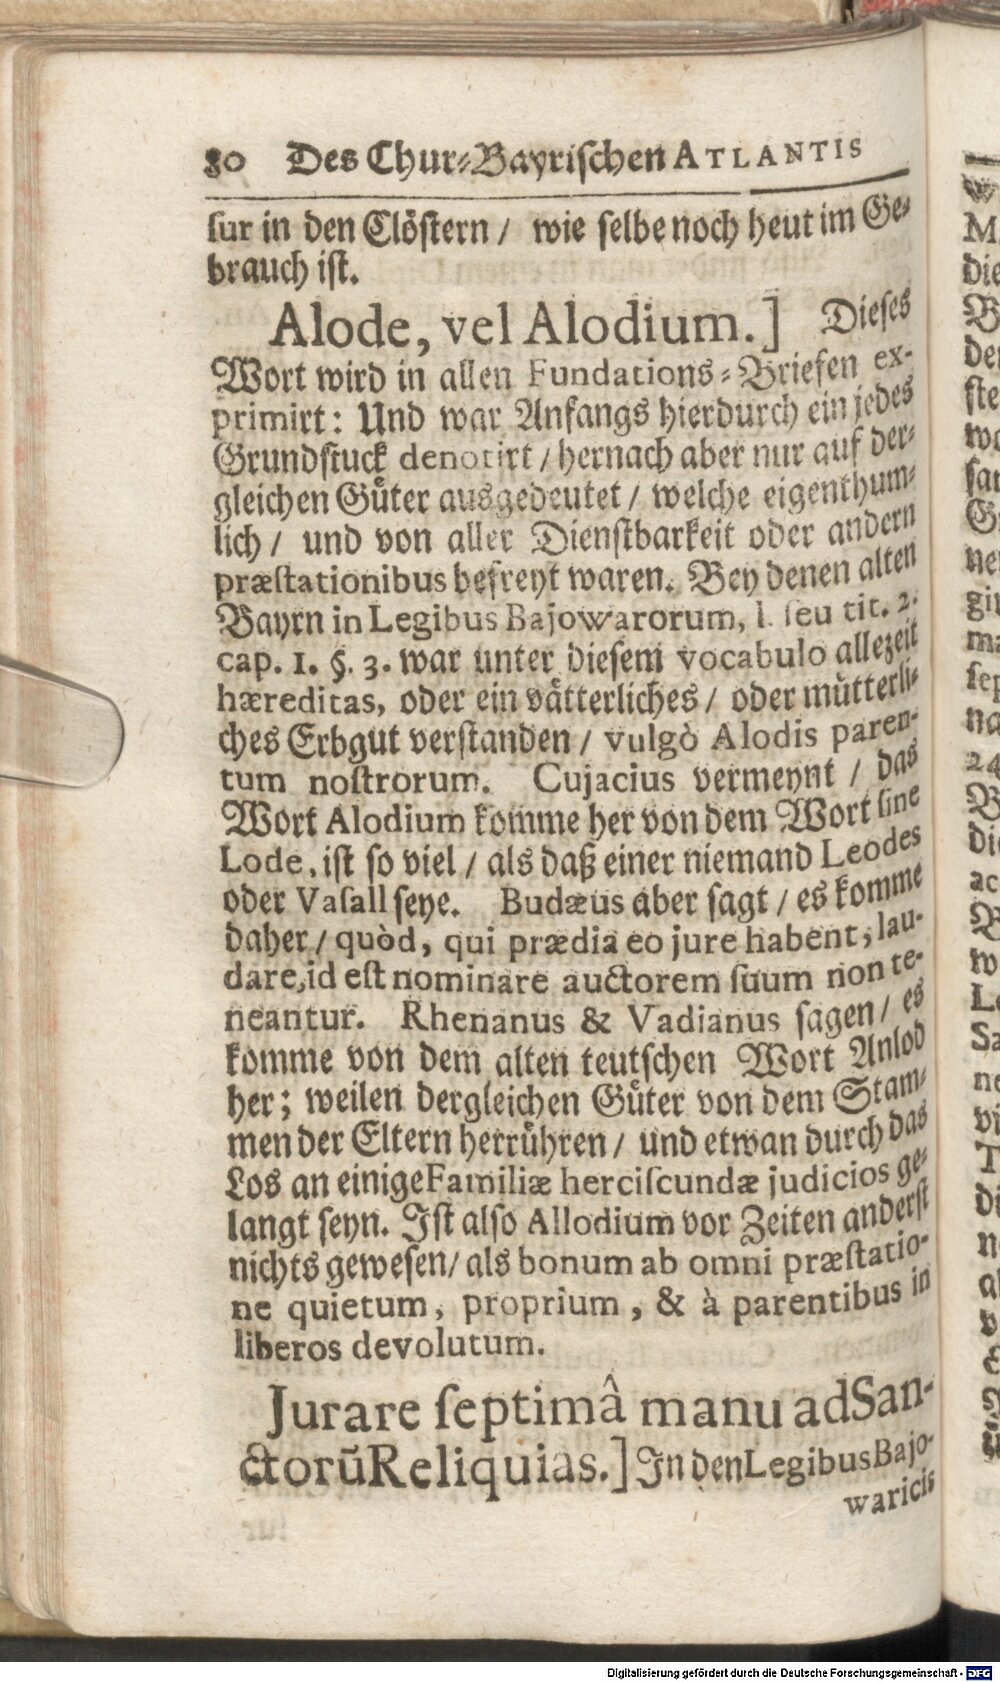 80 Des Chur-Bayrischen ATLANTIS
sur in den Clöstern / wie selbe noch heut im Ge-
brauch ist.
Alode, vel Alodium.] Dieses
Wort wird in allen Fundations-Briefen ex-
primirt: Und war Anfangs hierdurch ein jedes
Grundstuck denotirt / hernach aber nur auf der-
gleichen Güter ausgedeutet / welche eigenthum-
lich / und von aller Dienstbarkeit oder andern
præstationibus befreyt waren. Bey denen alten
Bayrn in Legibus Bajowarorum, l. seu tit. 2.
cap. 1. §. 3. war unter diesem vocabulo allezeit
hæreditas, oder ein vätterliches / oder mütterli-
ches Erbgut verstanden / vulgò Alodis paren-
tum nostrorum. Cujacius vermeynt / das
Wort Alodium komme her von dem Wort sine
Lode, ist so viel / als daß einer niemand Leodes
oder Vasall seye. Budæus aber sagt / es komme
daher / quòd, qui prædia eo jure habent, lau-
dare, id est nominare auctorem suum non te-
neantur. Rhenanus & Vadianus sagen / es
komme von dem alten teutschen Wort Anlod
her; weilen dergleichen Güter von dem Stam-
men der Eltern herrühren / und etwan durch das
Los an einige Familiæ herciscundæ judicios ge-
langt seyn. Ist also Allodium vor Zeiten anderst
nichts gewesen / als bonum ab omni præstatio-
ne quietum, proprium, & à parentibus in
liberos devolutum.
Jurare septimâ manu ad San-
ctorũ Reliquias.] In den Legibus Bajo-
waricis
Digitalisierung gefördert durch die Deutsche Forschungsgemeinschaft - DFG